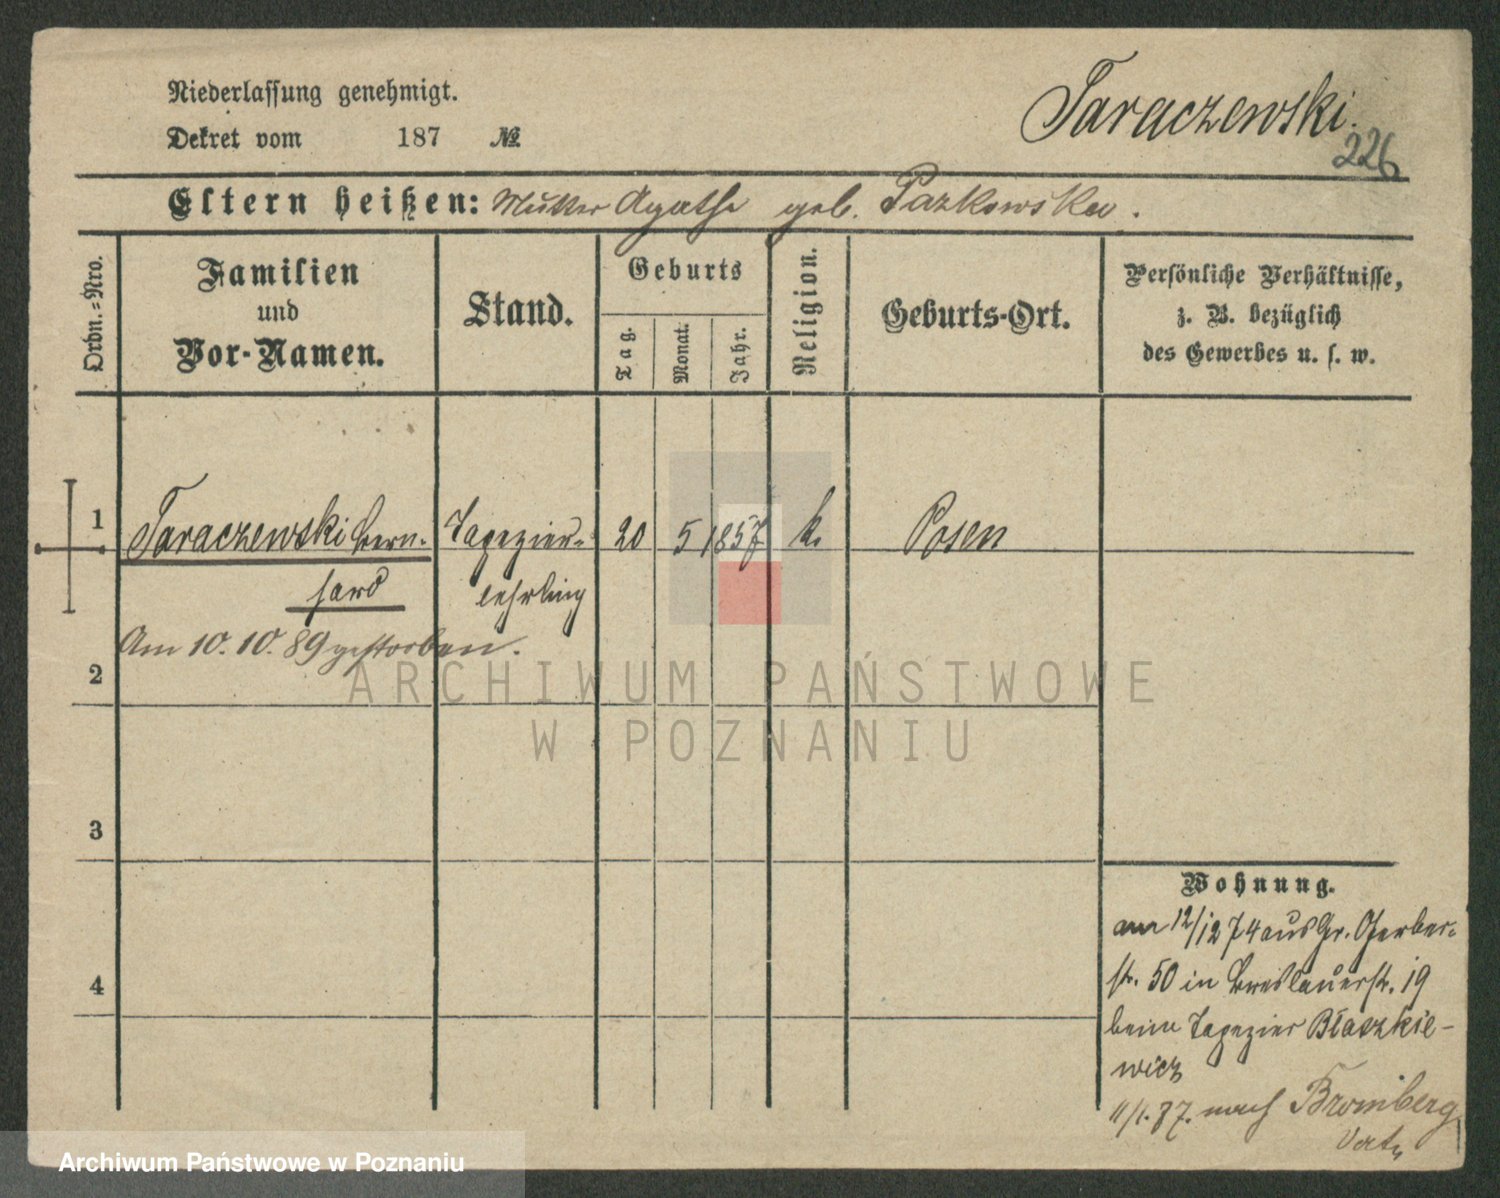 Niederlassung genehmigt.
Dekret vom 187 №
Taraczewski.
226
Eltern heißen: Mutter Agathe geb. Pazkowska.
Ordn.=Nro.
Familien
und
Vor-Namen.
Stand.
Geburts
Tag.
Monat.
Jahr.
Religion.
Geburts-Ort.
Persönliche Verhältnisse,
z. B. bezüglich
des Gewerbes u. s. w.
1
Taraczewski Bern-
hard
Tapezier-
lehrling
20
5
1857
k.
Posen
Am 10. 10. 89 gestorben.
2
3
4
Wohnung.
am 12/12 74 aus Gr. Gerber-
str. 50 in Breslauerstr. 19
beim Tapezier Błaszkie-
wicz
11/1. 87. nach Bromberg
ARCHIWUM PAŃSTWOWE
W POZNANIU
Archiwum Państwowe w Poznaniu